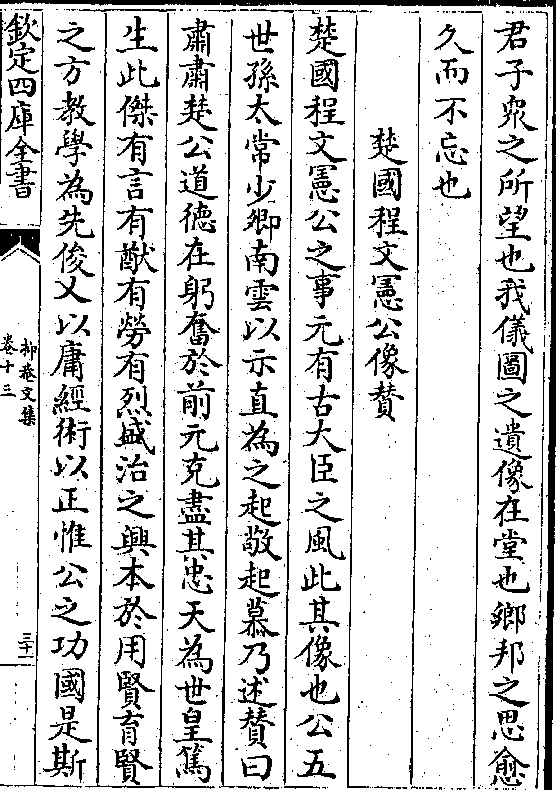 君子衆之所望也我儀圖之遺像在堂也鄉邦之思愈
久而不忘也
楚國程文憲公像賛
楚國程文憲公之事元有古大臣之風此其像也公五
世孫太常少卿南雲以示直為之起敬起慕乃述賛曰
肅肅楚公道德在躬奮於前元克盡其忠天為世皇篤
生此傑有言有猷有勞有烈盛治之興本於用賢育賢
之方教學為先俊乂以庸經術以正惟公之功國是斯
欽定四庫全書
抑菴文集
卷十三
三十一